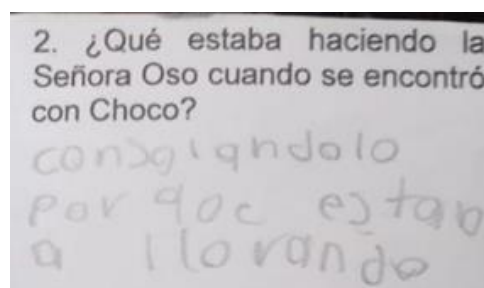 2. ¿Qué estaba haciendo la
Señora Oso cuando se encontró
con Choco?
consolandolo
por qoe estab
a llorando